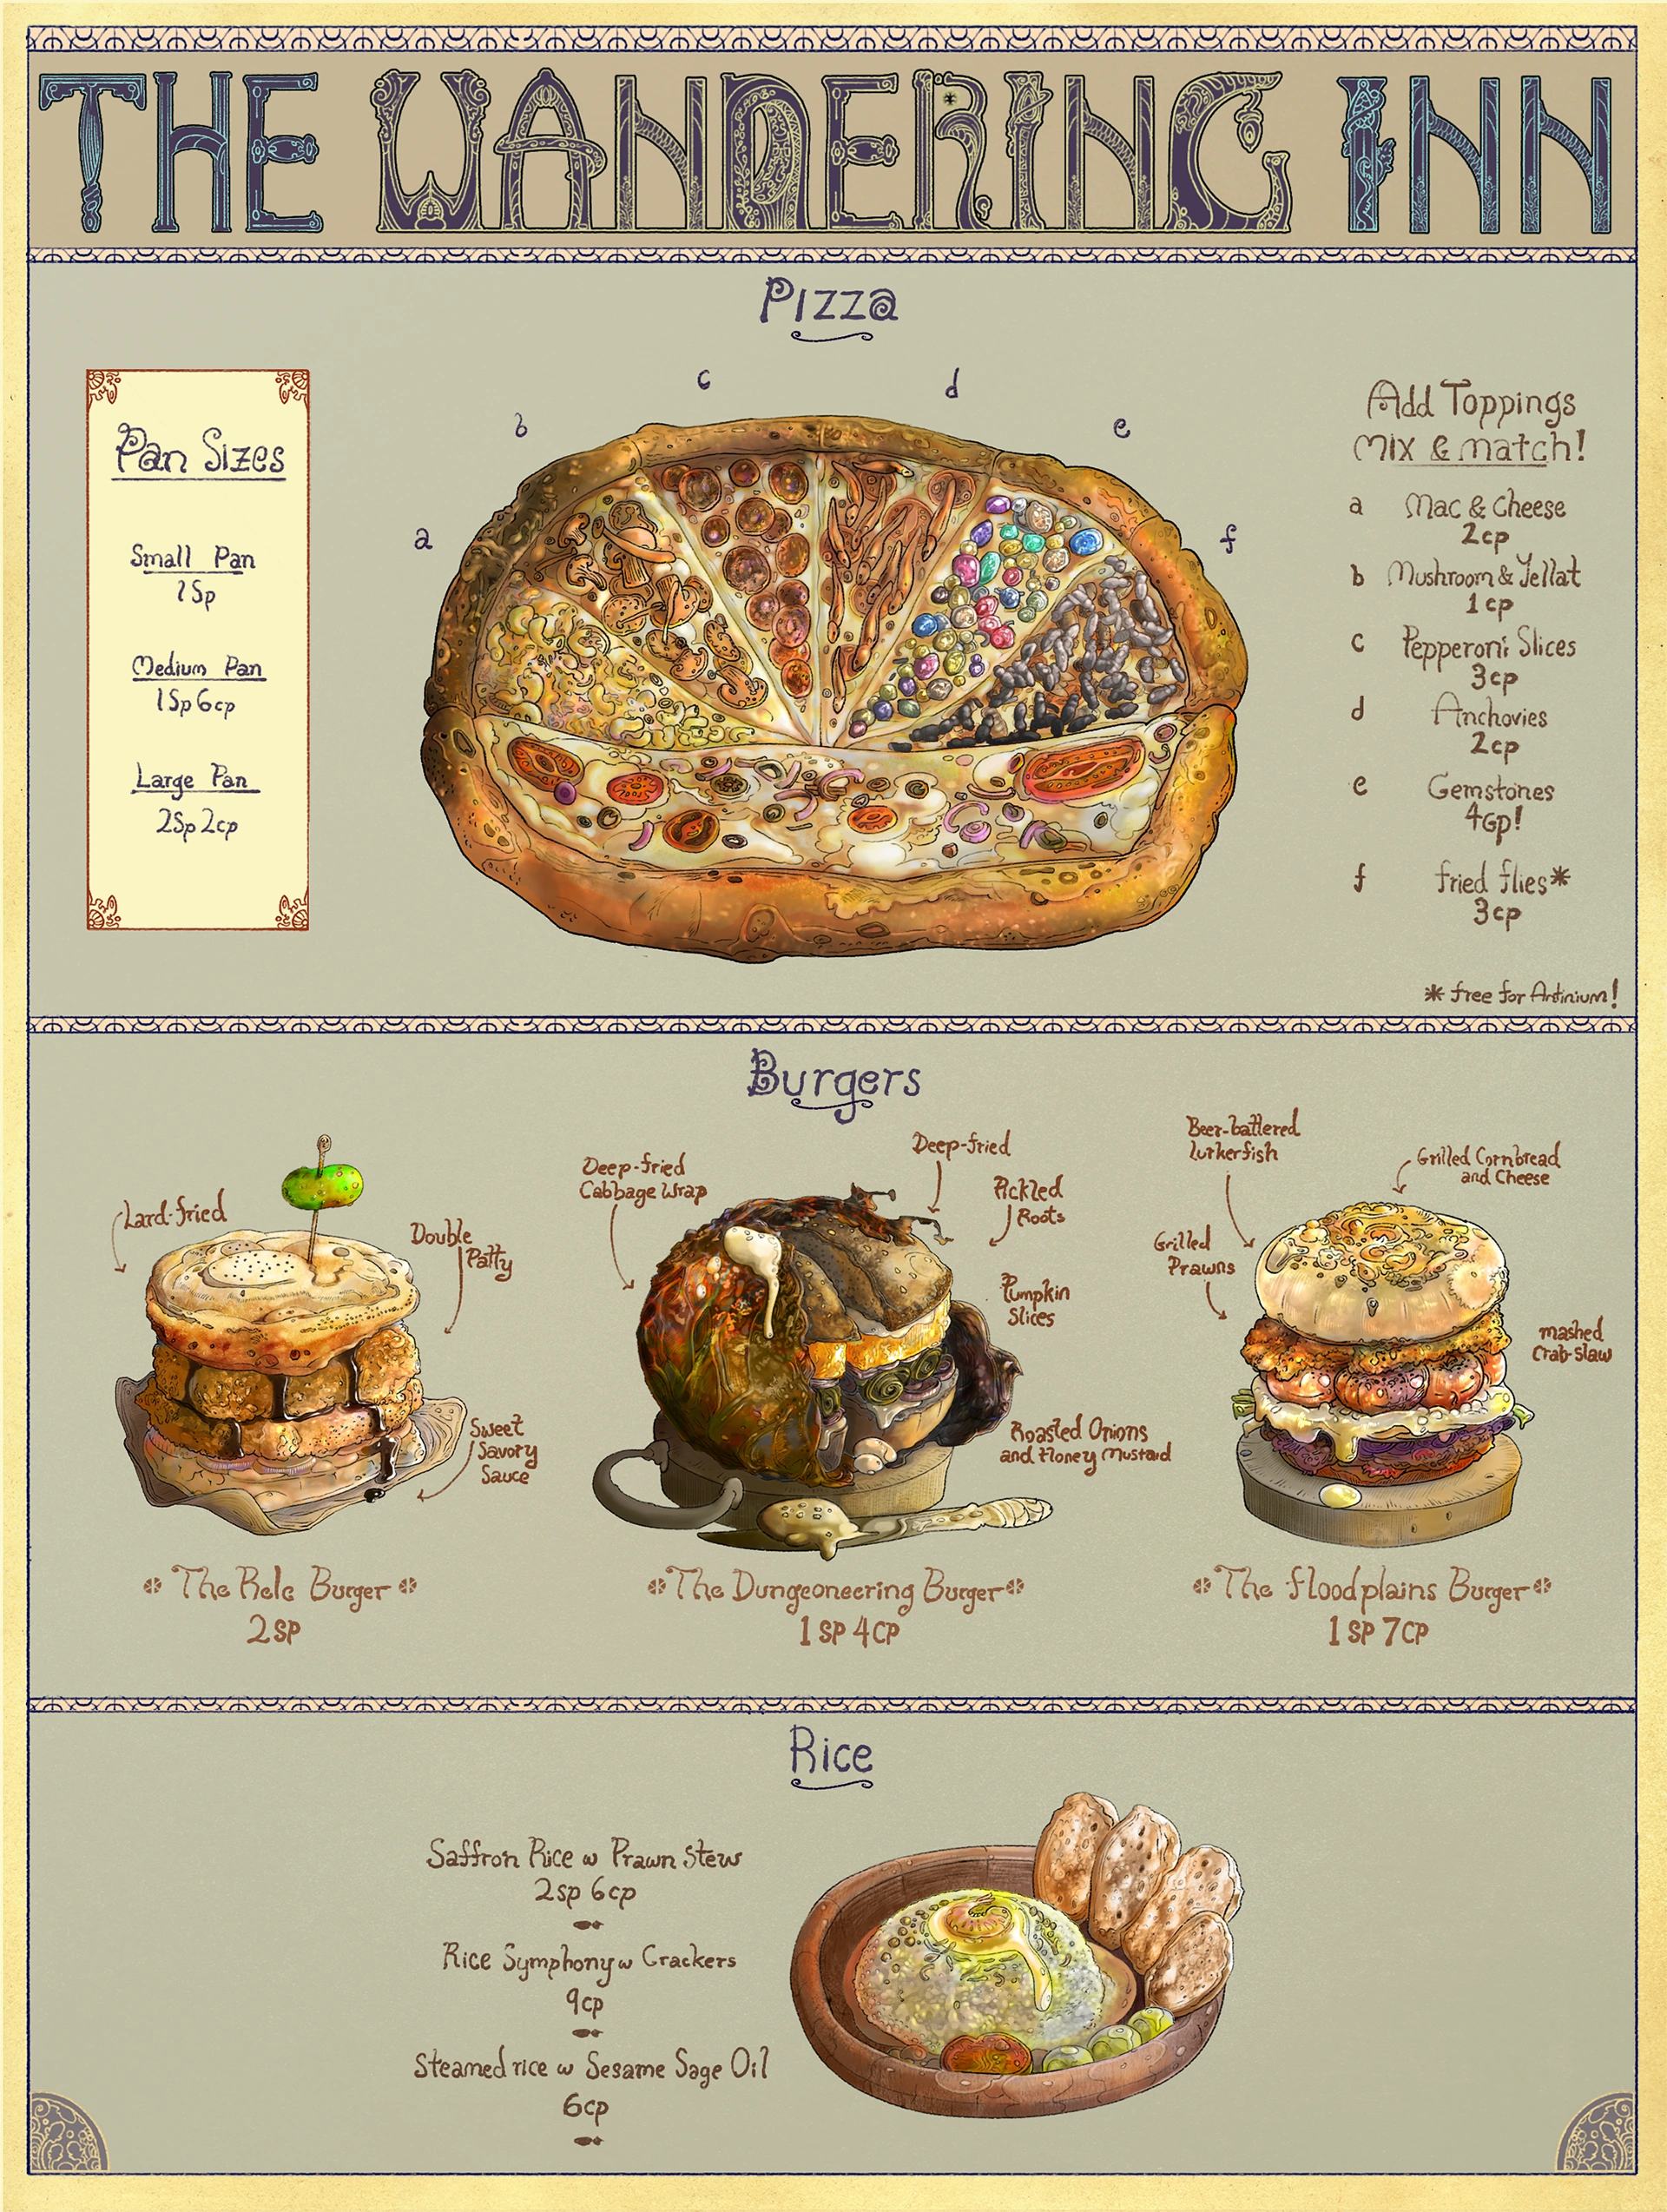 THE WANDERING INN
Pizza
Pan Sizes
Small Pan
1Sp
Medium Pan
1Sp 6cp
Large Pan
2Sp 2cp
a
b
c
d
e
f
Add Toppings
Mix & match!
a Mac & Cheese
2cp
b Mushroom & Yellat
1cp
c Pepperoni Slices
3cp
d Anchovies
2cp
e Gemstones
4Gp!
f fried flies*
3cp
* free for Antinium!
Burgers
Lard-fried
Double
Patty
Sweet
Savory
Sauce
The Relc Burger
2SP
Deep-fried
Cabbage Wrap
Deep-fried
Pickled
Roots
Pumpkin
Slices
Roasted Onions
and Honey Mustard
The Dungeoneering Burger
1SP 4CP
Beer-battered
Lurkerfish
Grilled Cornbread
and Cheese
Grilled
Prawns
mashed
Crab-slaw
The floodplains Burger
1SP 7CP
Rice
Saffron Rice w Prawn Stew
2sp 6cp
Rice Symphony w Crackers
9cp
Steamed rice w Sesame Sage Oil
6cp